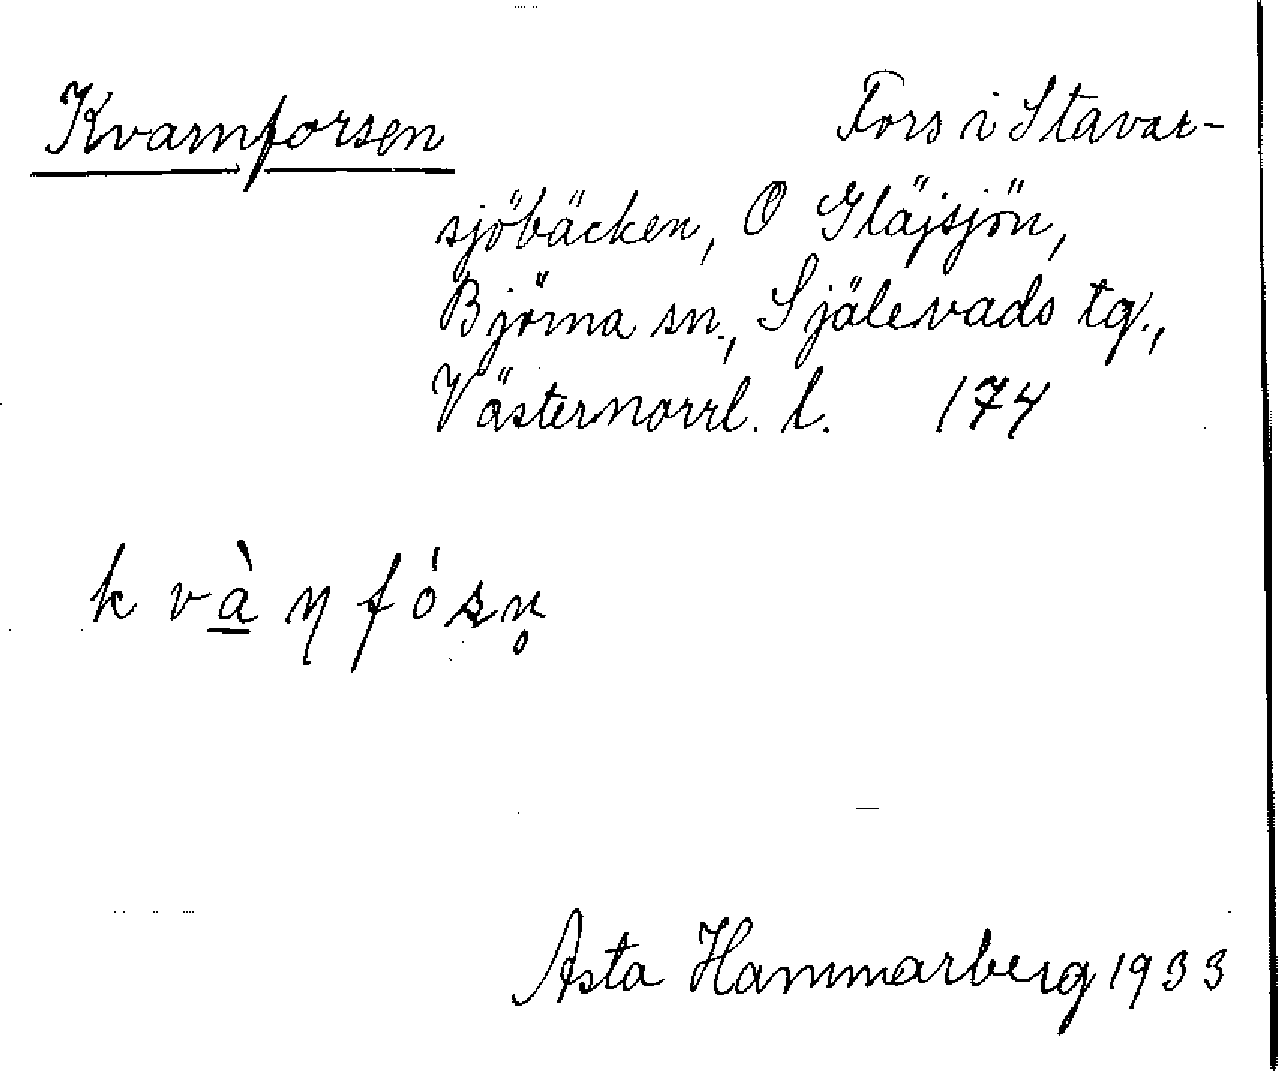 Kvarnforsen Fors i Stavar-
sjöbäcken, O Gläjsjön,
Björna sn., Själevads tg.,
Västernorrl. l. 174
kvàɳfósn̥
Asta Hammarberg 1933